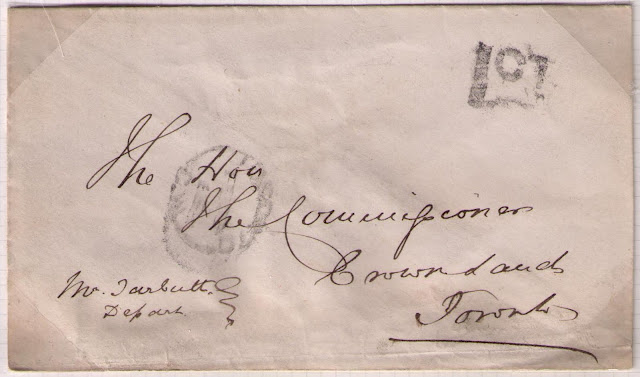 C
The Hon
The Commissioner
Crown Lands
Toronto
Mr. Tarbutt
Depart.